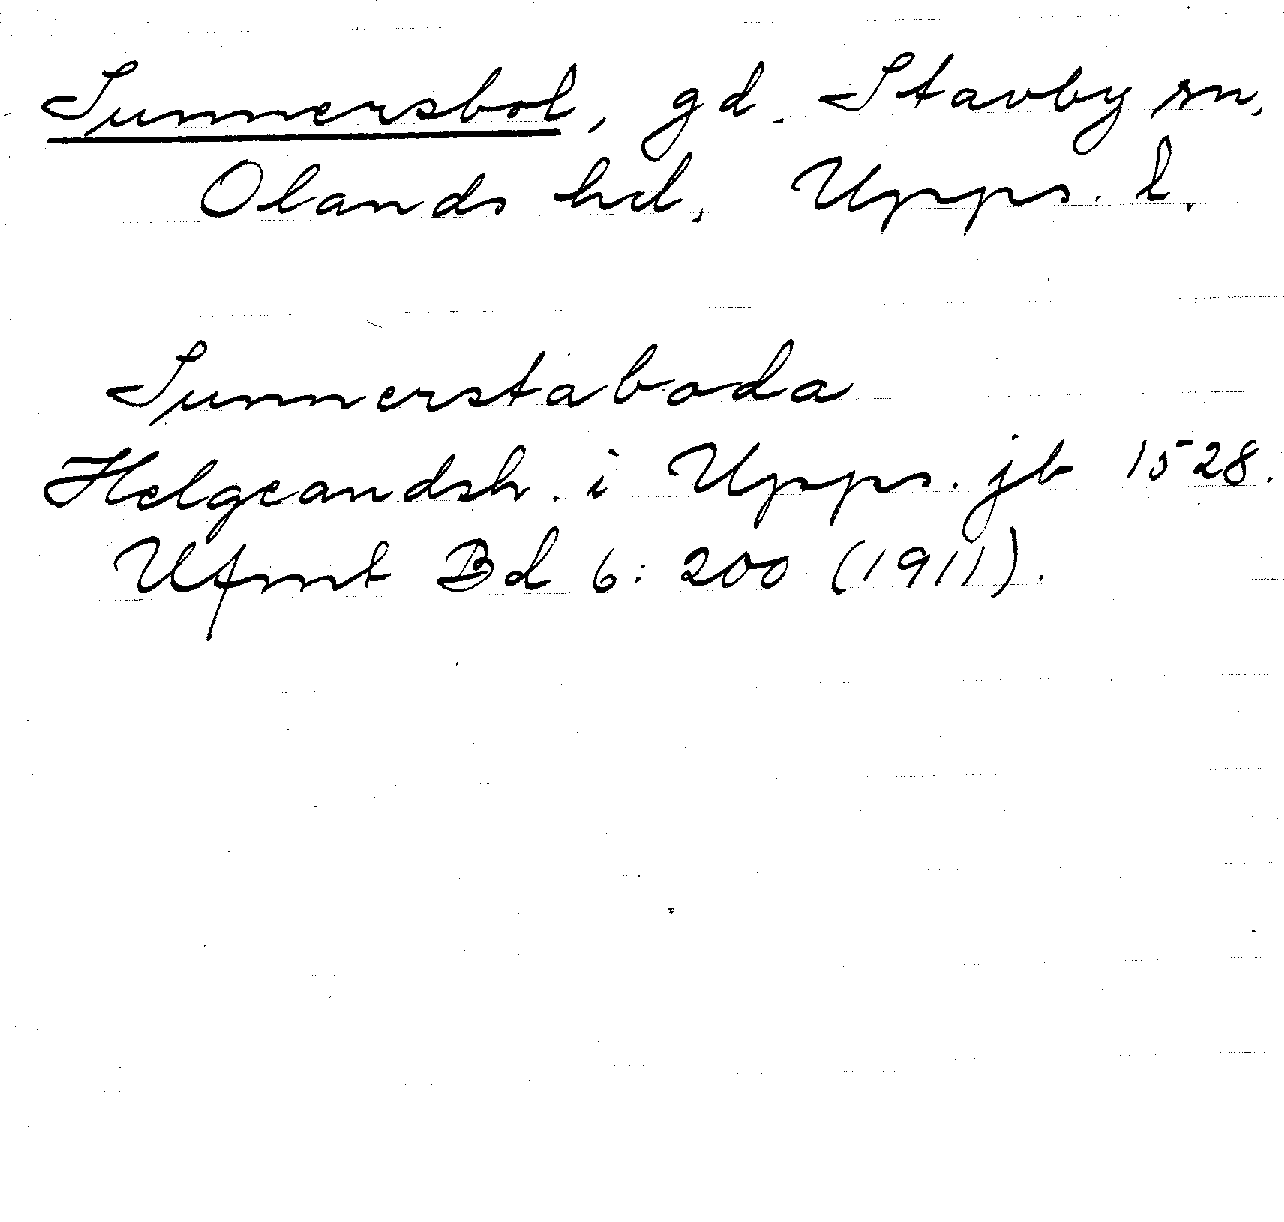 Sunnersbol, gd. Stavby sn,
Olands hd, Upps. l.
Sunnerstaboda
Helgeandsh. i Upps. jb 1528.
Ufmt Bd 6: 200 (1911).